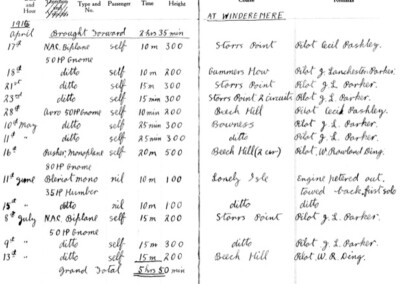 Type and No. Passenger Time Height Course
AT WINDERMERE
1916
April Brought Forward 2 hrs 35 min
17th NAC. Biplane self 10 m 300 Storrs Point Pilot Cecil Pashley.
50 HP Gnome
18th ditto self 10 m 200 Gummers How Pilot J. Lanchester Parker.
21st ditto self 15 m 300 Storrs Point Pilot J. L. Parker.
23rd ditto self 15 min 300 Storrs Point 2 Circuits Pilot J. L. Parker.
28th Avro 50HP Gnome self 10 min 200 Beech Hill Pilot Cecil Pashley.
10th May ditto self 25 min 300 Bowness Pilot J. L. Parker.
11th " ditto self 25 min 300 ditto Pilot J. L. Parker.
16th Pusher, Monoplane self 20 m 500 Beech Hill (2 cer) Pilot, W. Rowland Ding.
50 HP Gnome
11th June Bleriot mono nil 10 m 100 Lonely Isle Engine petered out,
35 HP Humber towed back, first solo
15th " ditto nil 10 m 100 ditto ditto
8th July NAC, Biplane self 15 m 200 Storrs Point Pilot J. L. Parker.
50 HP Gnome
9th " ditto self 15 m 300 ditto Pilot J. L. Parker.
13th " ditto self 15 m 200 Beech Hill Pilot W. R. Ding.
Grand Total 5 hrs 50 min